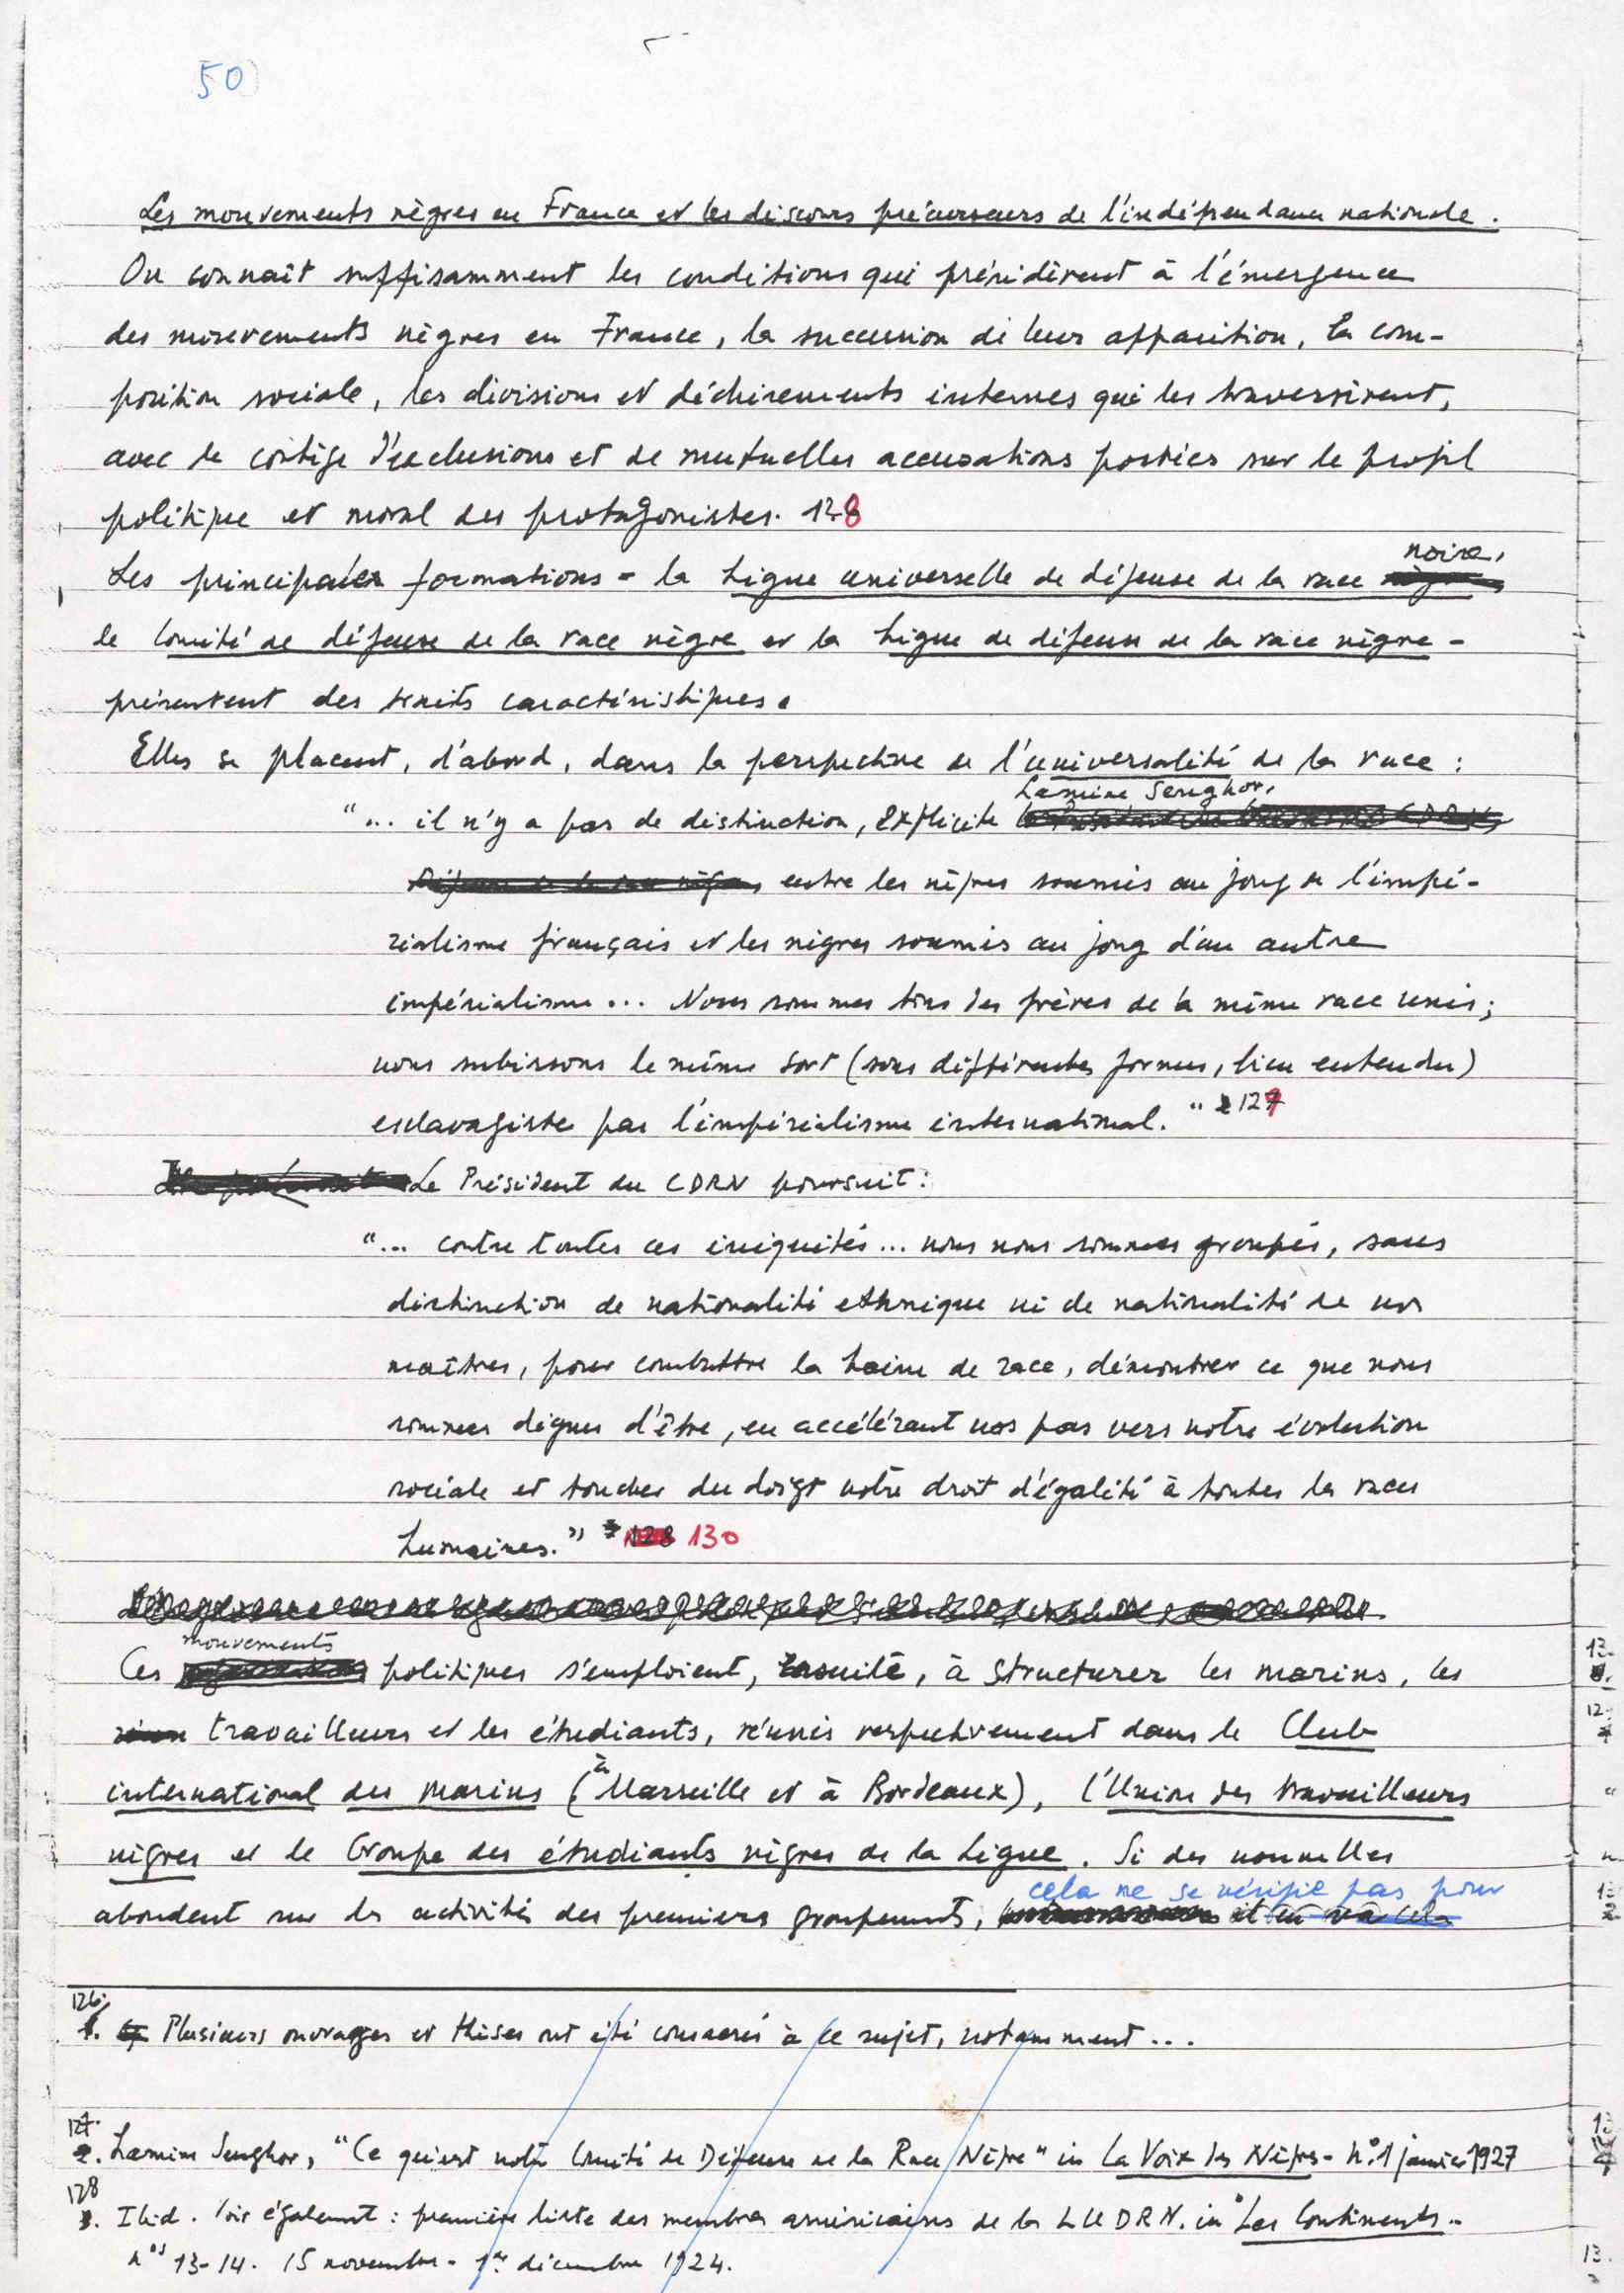 50
Les mouvements nègres en France et les discours précurseurs de l'indépendance nationale.
On connaît suffisamment les conditions qui présidèrent à l'émergence
des mouvements nègres en France, la succession de leur apparition, la com-
position sociale, les divisions et déchirements internes qui les traversèrent,
avec le cortège d'exclusions et de mutuelles accusations portées sur le profil
politique et moral des protagonistes. 128
noire,
Les principales formations - la Ligue universelle de défense de la race
le Comité de défense de la race nègre et la Ligue de défense de la race nègre -
présentent des traits caractéristiques.
Elles se placent, d'abord, dans la perspective de l'universalité de la race :
Lamine Senghor,
"... il n'y a pas de distinction, explicite
entre les nègres soumis au joug de l'impé-
rialisme français et les nègres soumis au joug d'un autre
impérialisme... Nous sommes tous des frères de la même race unis;
nous subissons le même sort (sous différentes formes, bien entendu)
esclavagiste par l'impérialisme international." 129
Le Président du CDRN poursuit :
"... contre toutes ces iniquités... nous nous sommes groupés, sans
distinction de nationalité ethnique ni de nationalité de nos
maîtres, pour combattre la haine de race, démontrer ce que nous
sommes dignes d'être, en accélérant nos pas vers notre évolution
sociale et toucher du doigt notre droit d'égalité à toutes les races
humaines." 128 130
mouvements
Ces politiques s'emploient, ensuite, à structurer les marins, les
travailleurs et les étudiants, réunis respectivement dans le Club
international des marins (à Marseille et à Bordeaux), l'Union des travailleurs
nègres et le Groupe des étudiants nègres de la Ligue. Si des nouvelles
cela ne se vérifie pas pour
abondent sur les activités des premiers groupements, et en va cela
126.
1. Plusieurs ouvrages et thèses ont été consacrés à ce sujet, notamment...
127.
2. Lamine Senghor, "Ce qu'est notre Comité de Défense de la Race Nègre" in La Voix des Nègres - N°1 janvier 1927
128
3. Ibid. Voir également : première liste des membres américains de la LUDRN. in Les Continents -
n°s 13-14. 15 novembre - 1er décembre 1924.